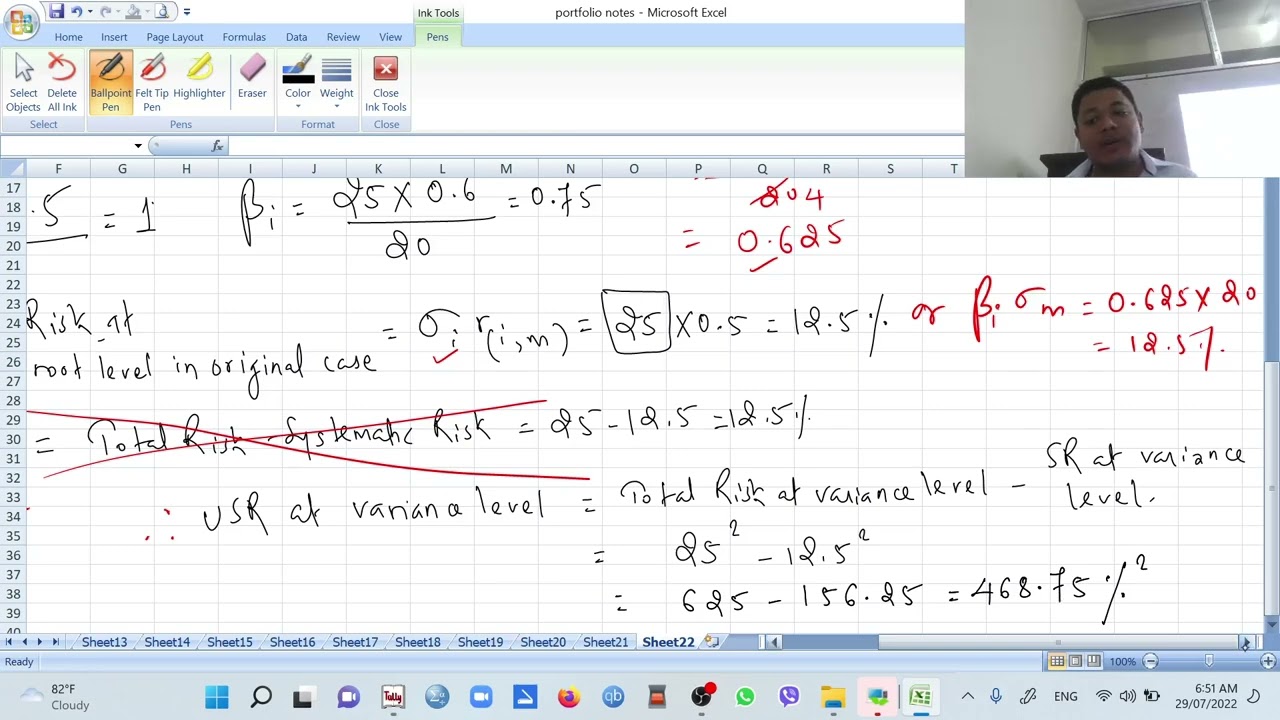 Ink Tools
portfolio notes - Microsoft Excel
Home Insert Page Layout Formulas Data Review View Pens
Select Objects
Delete All Ink
Ballpoint Pen
Felt Tip Pen
Highlighter
Eraser
Color
Weight
Close Ink Tools
Select Pens Format Close
fx
F G H I J K L M N O P Q R S T
17
18
19
20
21
22
23
24
25
26
27
28
29
30
31
32
33
34
35
36
37
38
39
40
.5 = 1 βi = 25 X 0.6 = 0.75
20
204
= 0.625
Risk at
root level in original case
= σi r(i,m) = 25 X 0.5 = 12.5%
or βi σm = 0.625 X 20
= 12.5%
= Total Risk - Systematic Risk = 25 - 12.5 = 12.5%
∴ USR at variance level = Total Risk at variance level - SR at variance level.
= 25² - 12.5²
= 625 - 156.25 = 468.75 %²
Sheet13 Sheet14 Sheet15 Sheet16 Sheet17 Sheet18 Sheet19 Sheet20 Sheet21 Sheet22
Ready 100%
82°F
Cloudy
Tally
qb
ENG
6:51 AM
29/07/2022